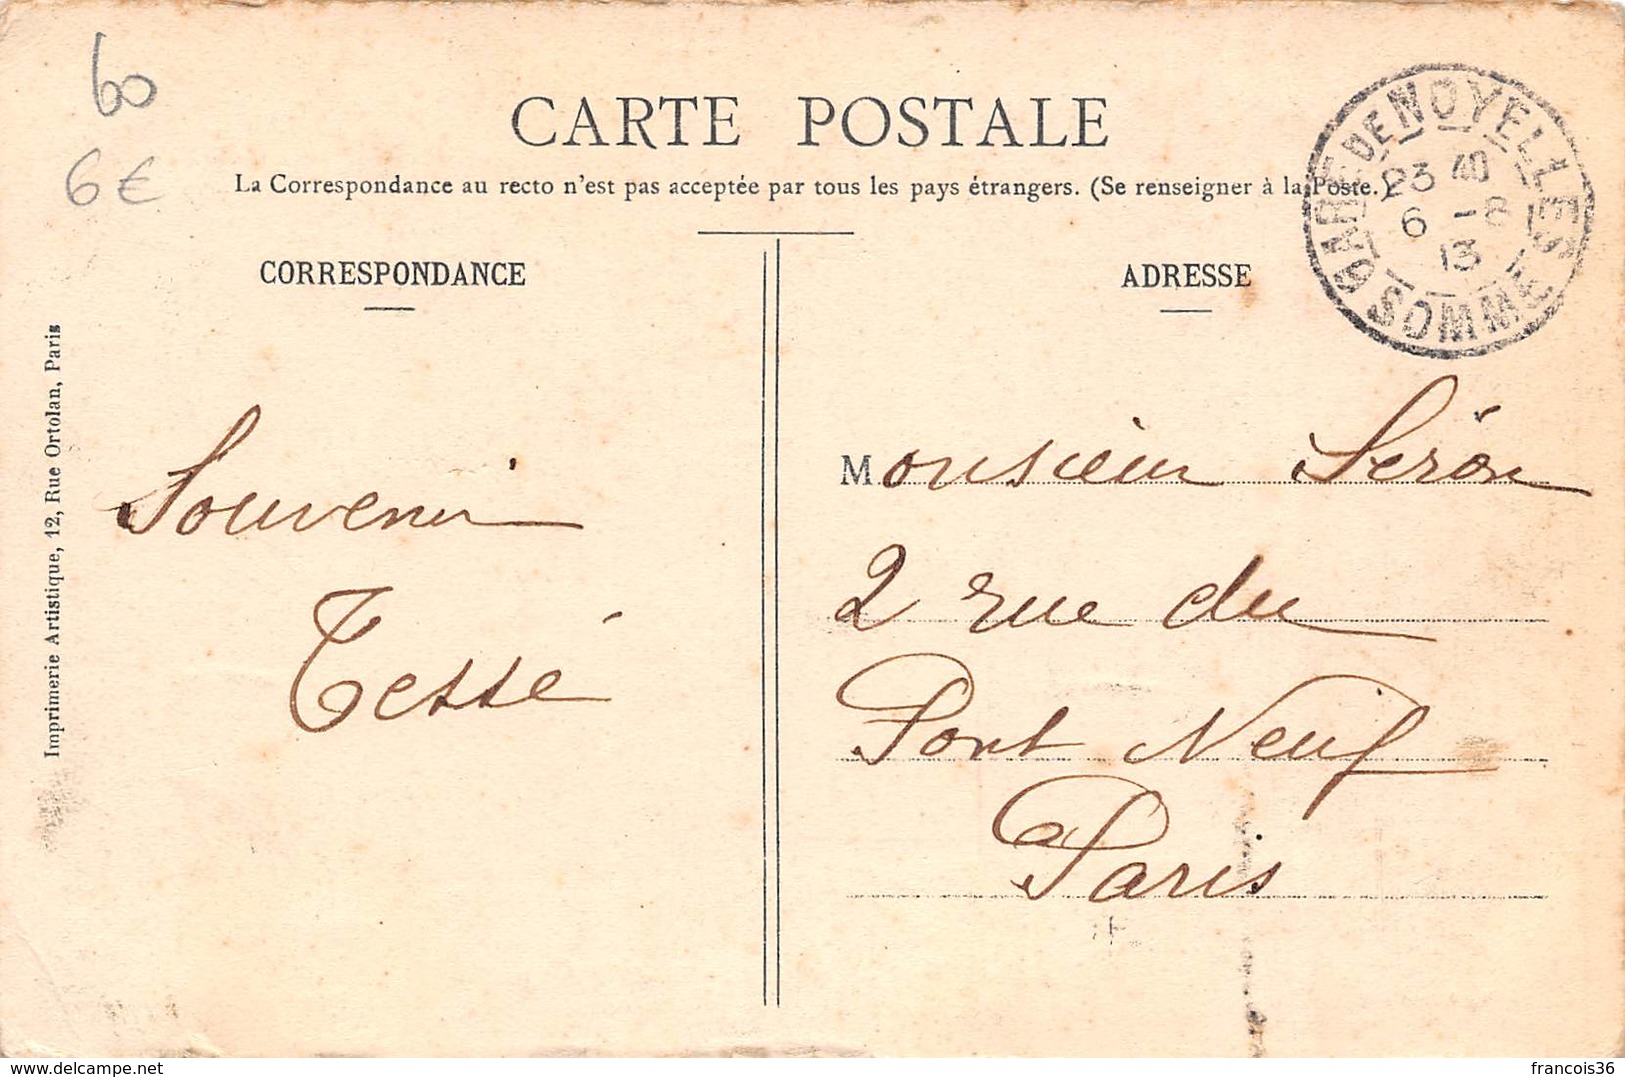 60
6€
CARTE POSTALE
La Correspondance au recto n'est pas acceptée par tous les pays étrangers. (Se renseigner à la Poste.)
CORRESPONDANCE
ADRESSE
GARE DE NOYELLES
23 40
6 -8
13
SOMME
Imprimerie Artistique, 12, Rue Ortolan, Paris
Souvenir
Tessé
Monsieur Séron
2 rue du
Pont Neuf
Paris
delcampe.net
francois36